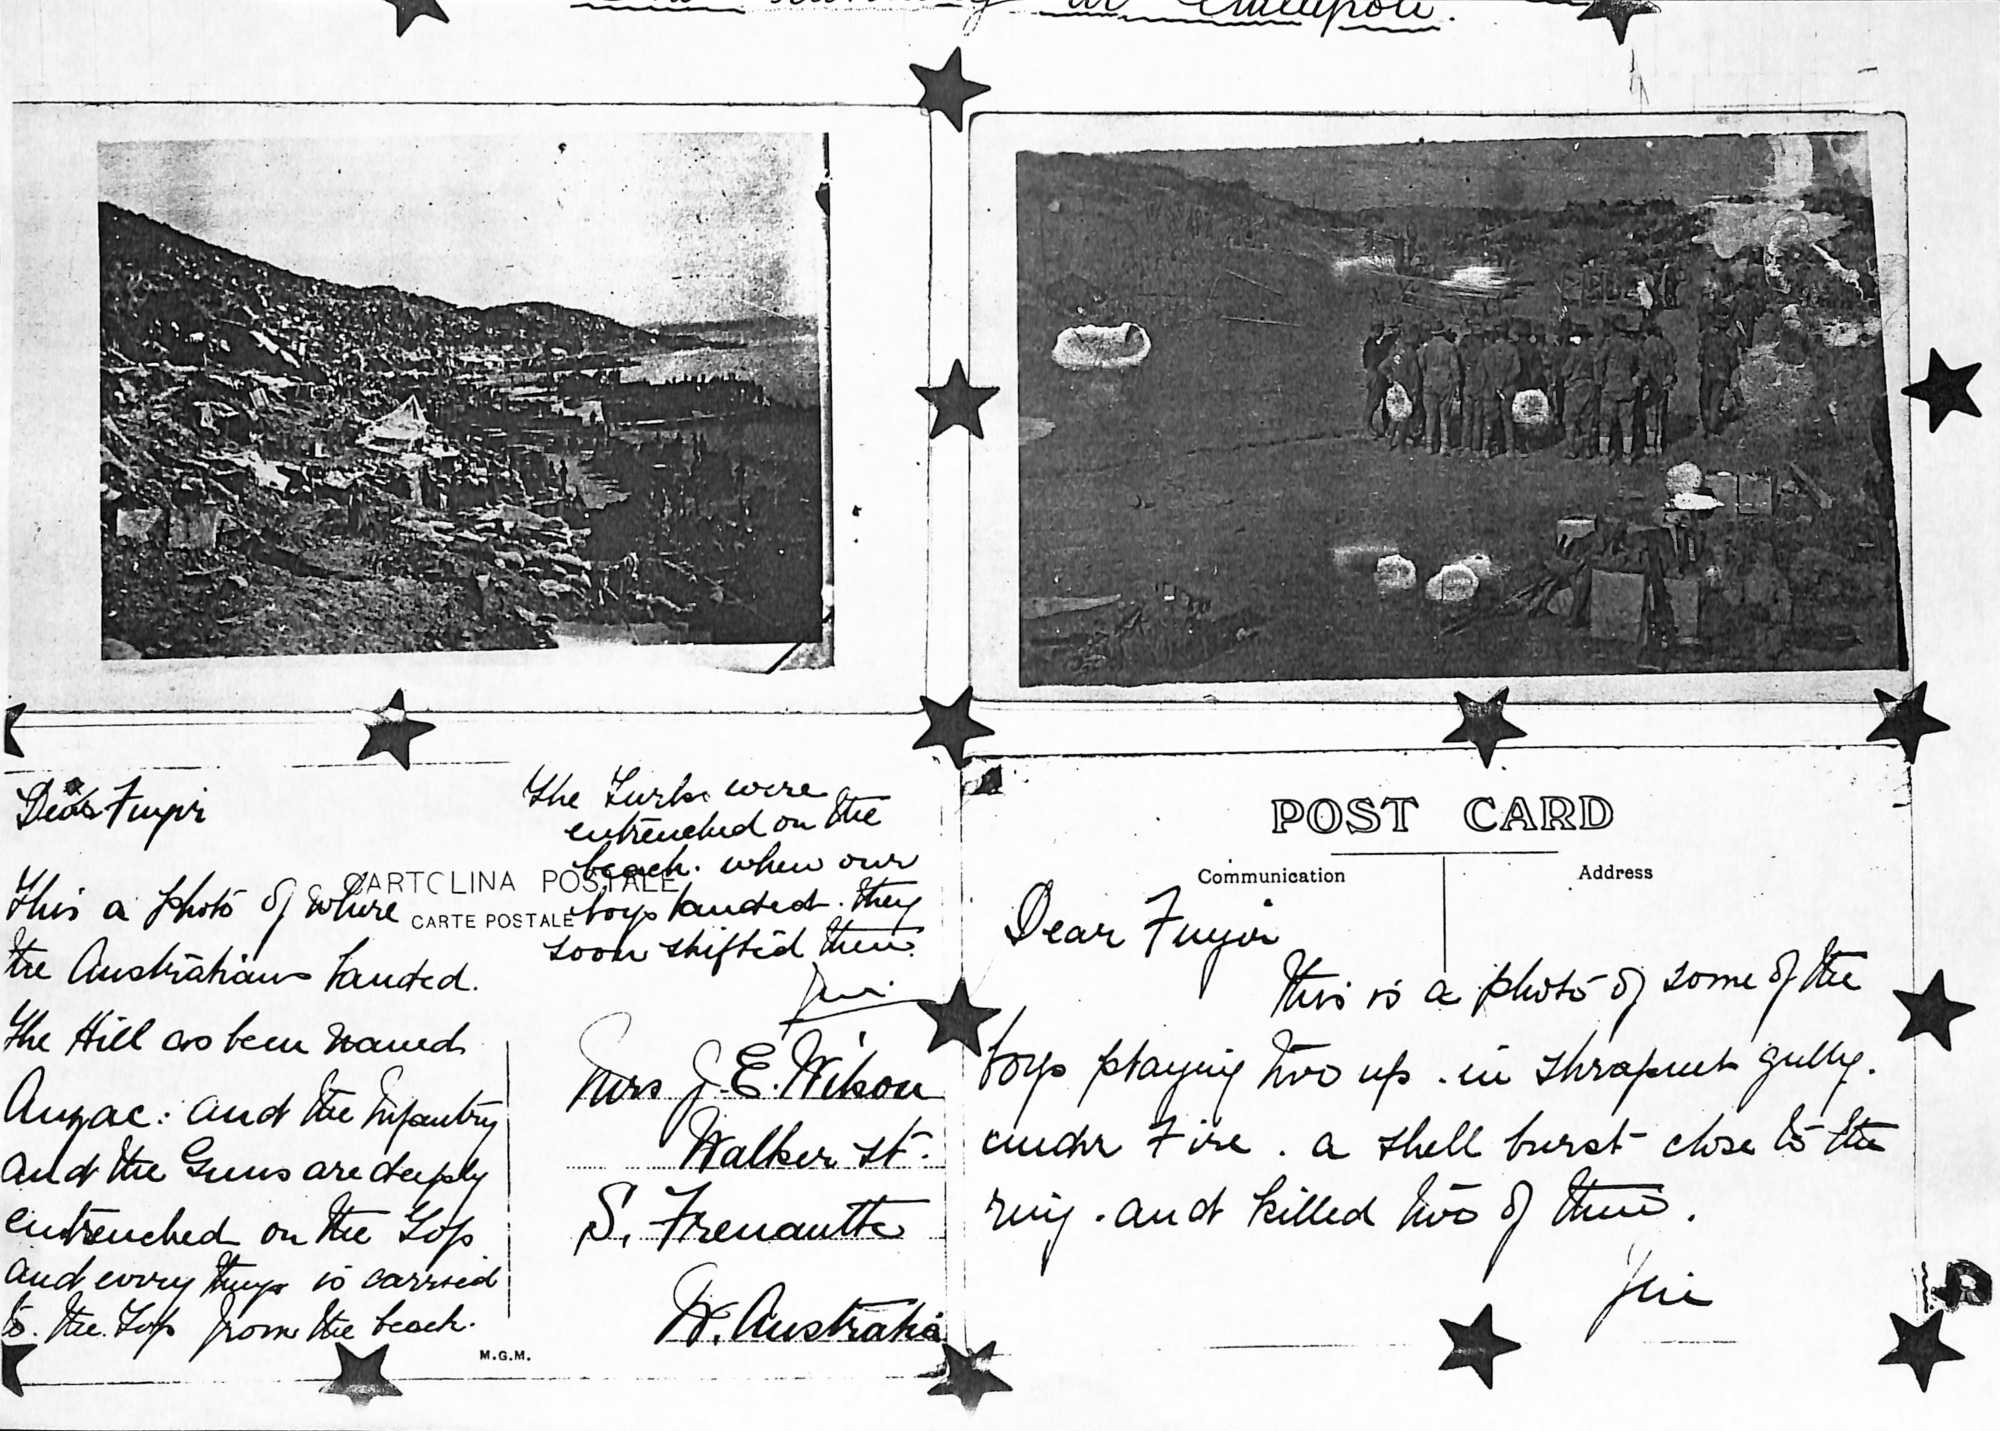 at Gallipoli.
Dear Fuyoi
This a photo of where
the Australians landed.
The Hill as been named
Anzac: and the Infantry
and the Guns are deeply
entrenched on the Top
and every things is carried
to. the Top from the beach.
CARTOLINA POSTALE
CARTE POSTALE
M.G.M.
The Turks were
entrenched on the
beach. when our
boys landed. they
soon shifted them.
Jim.
Mrs J. E. Wilson
Walker st.
S. Fremantle
W. Australia
POST CARD
Communication
Address
Dear Fuyoi
this is a photo of some of the
boys playing two up. in shrapnel gully.
under Fire. a shell burst close to the
ring. and killed two of them.
Jim